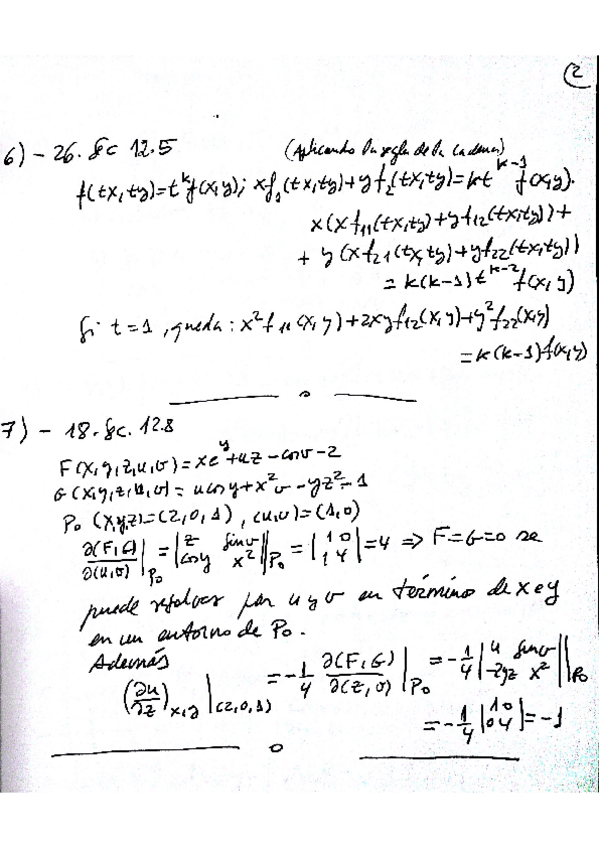 2
6) - 26. Sc 12.5 (Aplicando la regla de la cadena)
f(tx,ty)=t^k f(x,y); xf₁(tx,ty)+yf₂(tx,ty)=kt^{k-1} f(x,y).
x(xf₁₁(tx,ty)+yf₁₂(tx,ty))+
+ y(xf₂₁(tx,ty)+yf₂₂(tx,ty))
= k(k-1)t^{k-2}f(x,y)
Si t=1, queda: x²f₁₁(x,y)+2xyf₁₂(x,y)+y²f₂₂(x,y)
=k(k-1)f(x,y)
7) - 18. Sc. 12.8
F(x,y,z,u,v)=xe^y+uz-cosv-2
G(x,y,z,u,v)=u cosy+x²v-yz²-1
P₀ (x,y,z)=(2,0,1), (u,v)=(1,0)
∂(F,G)/∂(u,v)|P₀ = |z senv; cosy x²||P₀ = |1 0; 1 4|=4 => F=G=0 se
puede resolver por u y v en términos de x e y
en un entorno de P₀.
Además
(∂u/∂z)x,y|(2,0,1) = -1/4 ∂(F,G)/∂(z,v)|P₀ = -1/4|u senv; -2yz x²||P₀
= -1/4|1 0; 0 4|=-1